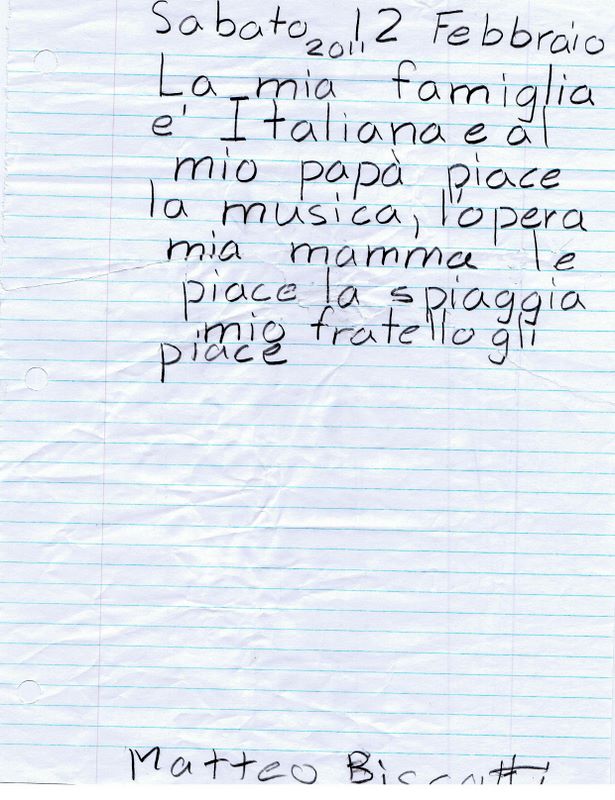 Sabato 12 Febbraio
2011
La mia famiglia
e' Italiana e al
mio papà piace
la musica, l'opera
mia mamma le
piace la spiaggia
mio fratello gli
piace
Matteo